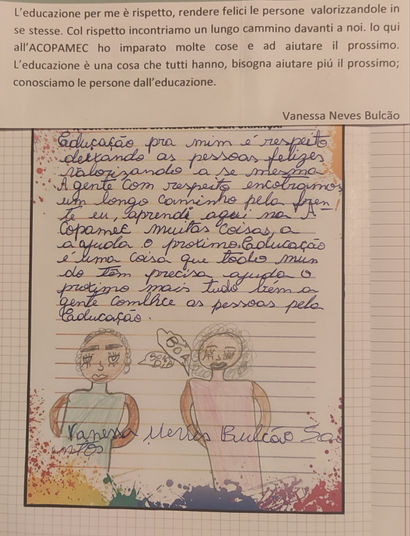 L'educazione per me è rispetto, rendere felici le persone valorizzandole in
se stesse. Col rispetto incontriamo un lungo cammino davanti a noi. Io qui
all'ACOPAMEC ho imparato molte cose e ad aiutare il prossimo.
L'educazione è una cosa che tutti hanno, bisogna aiutare piú il prossimo;
conosciamo le persone dall'educazione.
Vanessa Neves Bulcão
Educação pra mim é respeito
deixando as pessoas felizes
valorizando a se mesma
A gente com respeito encotramos
um longo caminho pela fren
te eu, aprendi aqui na A
copamec muitas coisas, a
ajuda o proximo. Eaducação
é uma coisa que todo mun
do tem precisa ajuda o
proximo mais tudo bem a
gente comhce as pessoas pela
Eaducação.
Vanessa Neves Bulcão San
ntos